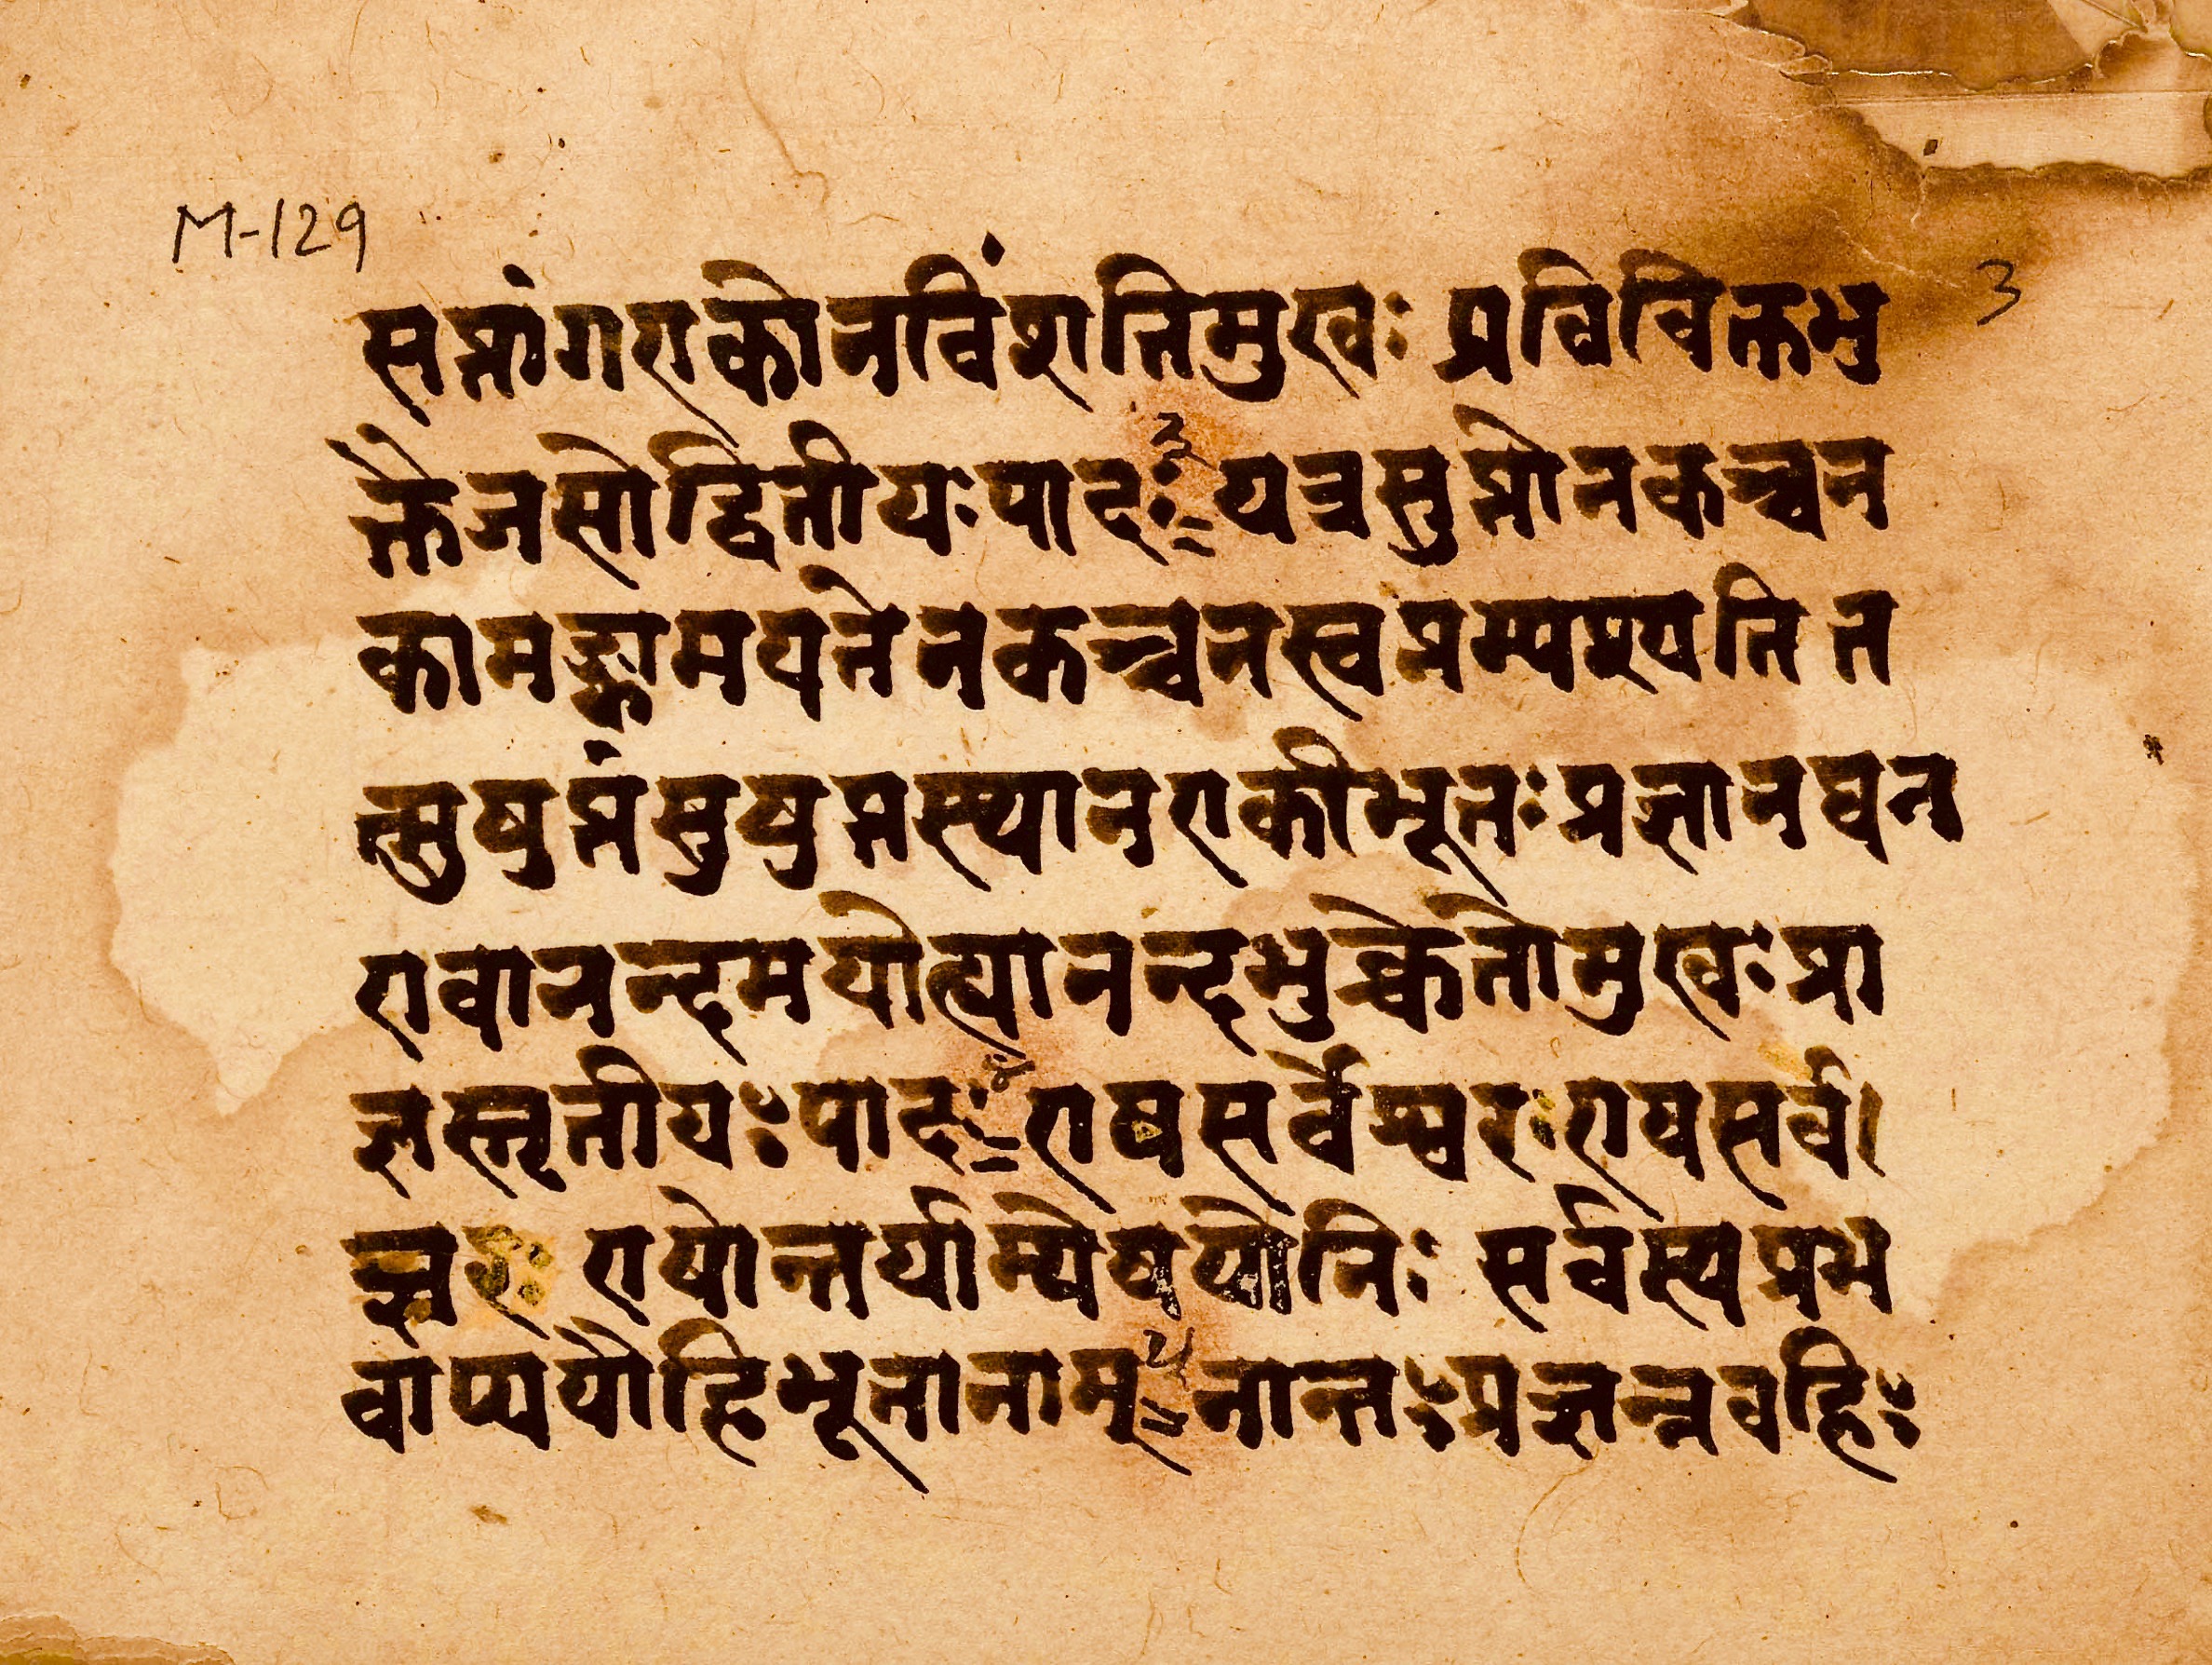 M-129
सप्तांगएकोनविंशतिमुखः प्रविविक्तभु 3
क्तैजसोद्वितीयःपादः ३ = यत्रसुप्तोनकञ्चन
कामङ्कामयतेनकञ्चनस्वप्नम्पश्यति त
त्सुषुप्तंसुषुप्तस्थानएकीभूतःप्रज्ञानघन
एवानन्दमयोह्यानन्दभुक्चेतोमुखःप्रा
ज्ञस्तृतीयःपादः ४ = एषसर्वेश्वरःएषसर्व।
ज्ञरः एषोन्तर्याम्येषयोनिः सर्वस्यप्रभ
वाप्ययौहिभूतानाम् ५ = नान्तःप्रज्ञन्नवहिः